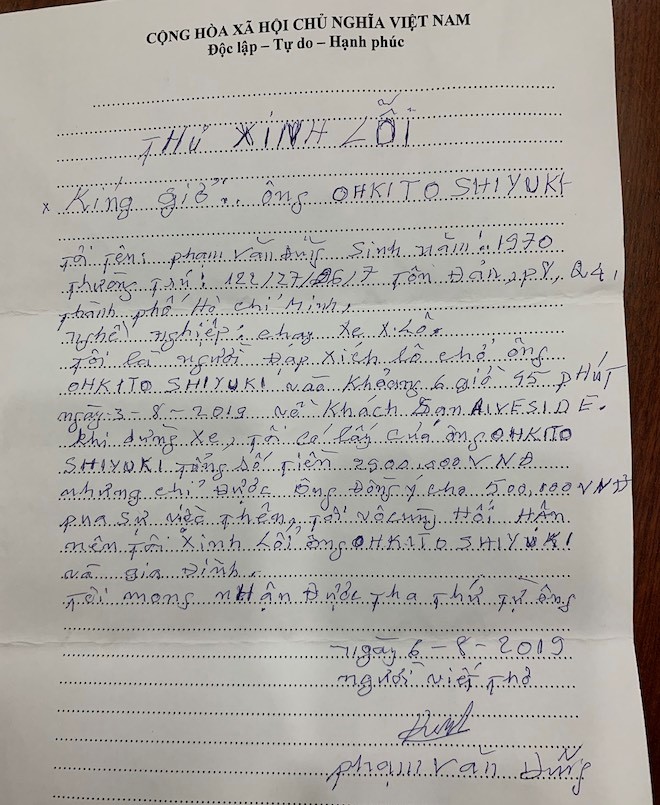 CỘNG HÒA XÃ HỘI CHỦ NGHĨA VIỆT NAM
Độc lập – Tự do – Hạnh phúc
THƯ XINH LỖI
x Kính giở... ông OHKITO SHIYUKI
Tôi Tên: phạm văn Dũng Sinh năm: 1970
Thường Trú: 122/27/26/7 Tôn Đản, p8, Q4,
Thành phố Hồ chí Minh,
nghề nghiệp: chạy Xe X.Lô.
Tôi là người Đáp Xích lô chở ông
OHKITO SHIYUKI vào Khoảng 6 giờ 45 PHÚT
ngày 3-8-2019 về Khách Sạn RIVESIDE.
Khi dừng Xe, Tôi có lấy của ông OHKITO
SHIYUKI Tổng Số Tiền 2900.000 VNĐ
nhưng chỉ Được ông Đồng ý cho 500,000 VNĐ
qua Sự việc Trên, Tôi vô cùng Hối HẬN
mên Tôi Xinh Lỗi ông OHKITO SHIYUKI
và gia Đình.
Tôi mong nHận Được Tha Thứ Từ ông
ngày 6-8-2019
người viết Thơ
phạm văn Dũng